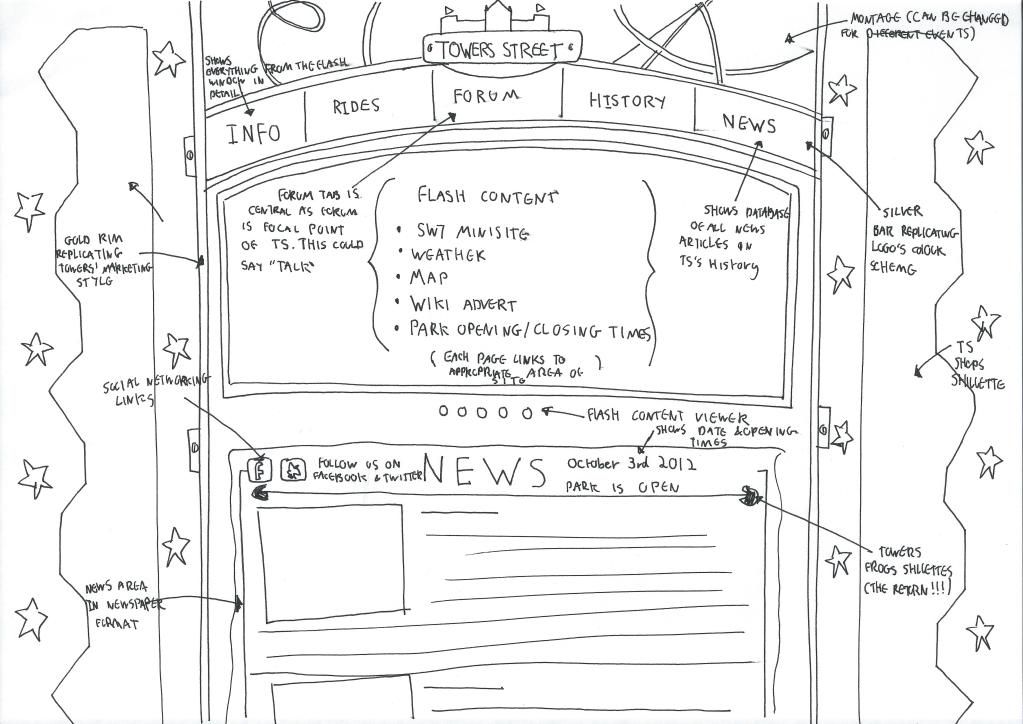 TOWERS STREET
MONTAGE (CAN BE CHANGED
FOR DIFFERENT EVENTS)
SHOWS
EVERYTHING FROM THE FLASH
WINDOW IN
DETAIL
INFO
RIDES
FORUM
HISTORY
NEWS
FORUM TAB IS
CENTRAL AS FORUM
IS FOCAL POINT
OF TS. THIS COULD
SAY "TALK"
FLASH CONTENT
• SW7 MINISITE
• WEATHER
• MAP
• WIKI ADVERT
• PARK OPENING/CLOSING TIMES
(EACH PAGE LINKS TO
APPROPRIATE AREA OF
SITE)
SHOWS DATABASE
OF ALL NEWS
ARTICLES ON
TS's HISTORY
SILVER
BAR REPLICATING
LOGO'S COLOUR
SCHEME
GOLD RIM
REPLICATING
TOWERS' MARKETING
STYLE
TS
SHOPS
SHILLETTE
SOCIAL NETWORKING
LINKS
FLASH CONTENT VIEWER
SHOWS DATE & OPENING
TIMES
F
FOLLOW US ON
FACEBOOK & TWITTER
NEWS
October 3rd 2012
PARK IS OPEN
TOWERS
FROGS SHILLETTES
(THE RETURN!!!)
NEWS AREA
IN NEWSPAPER
FORMAT